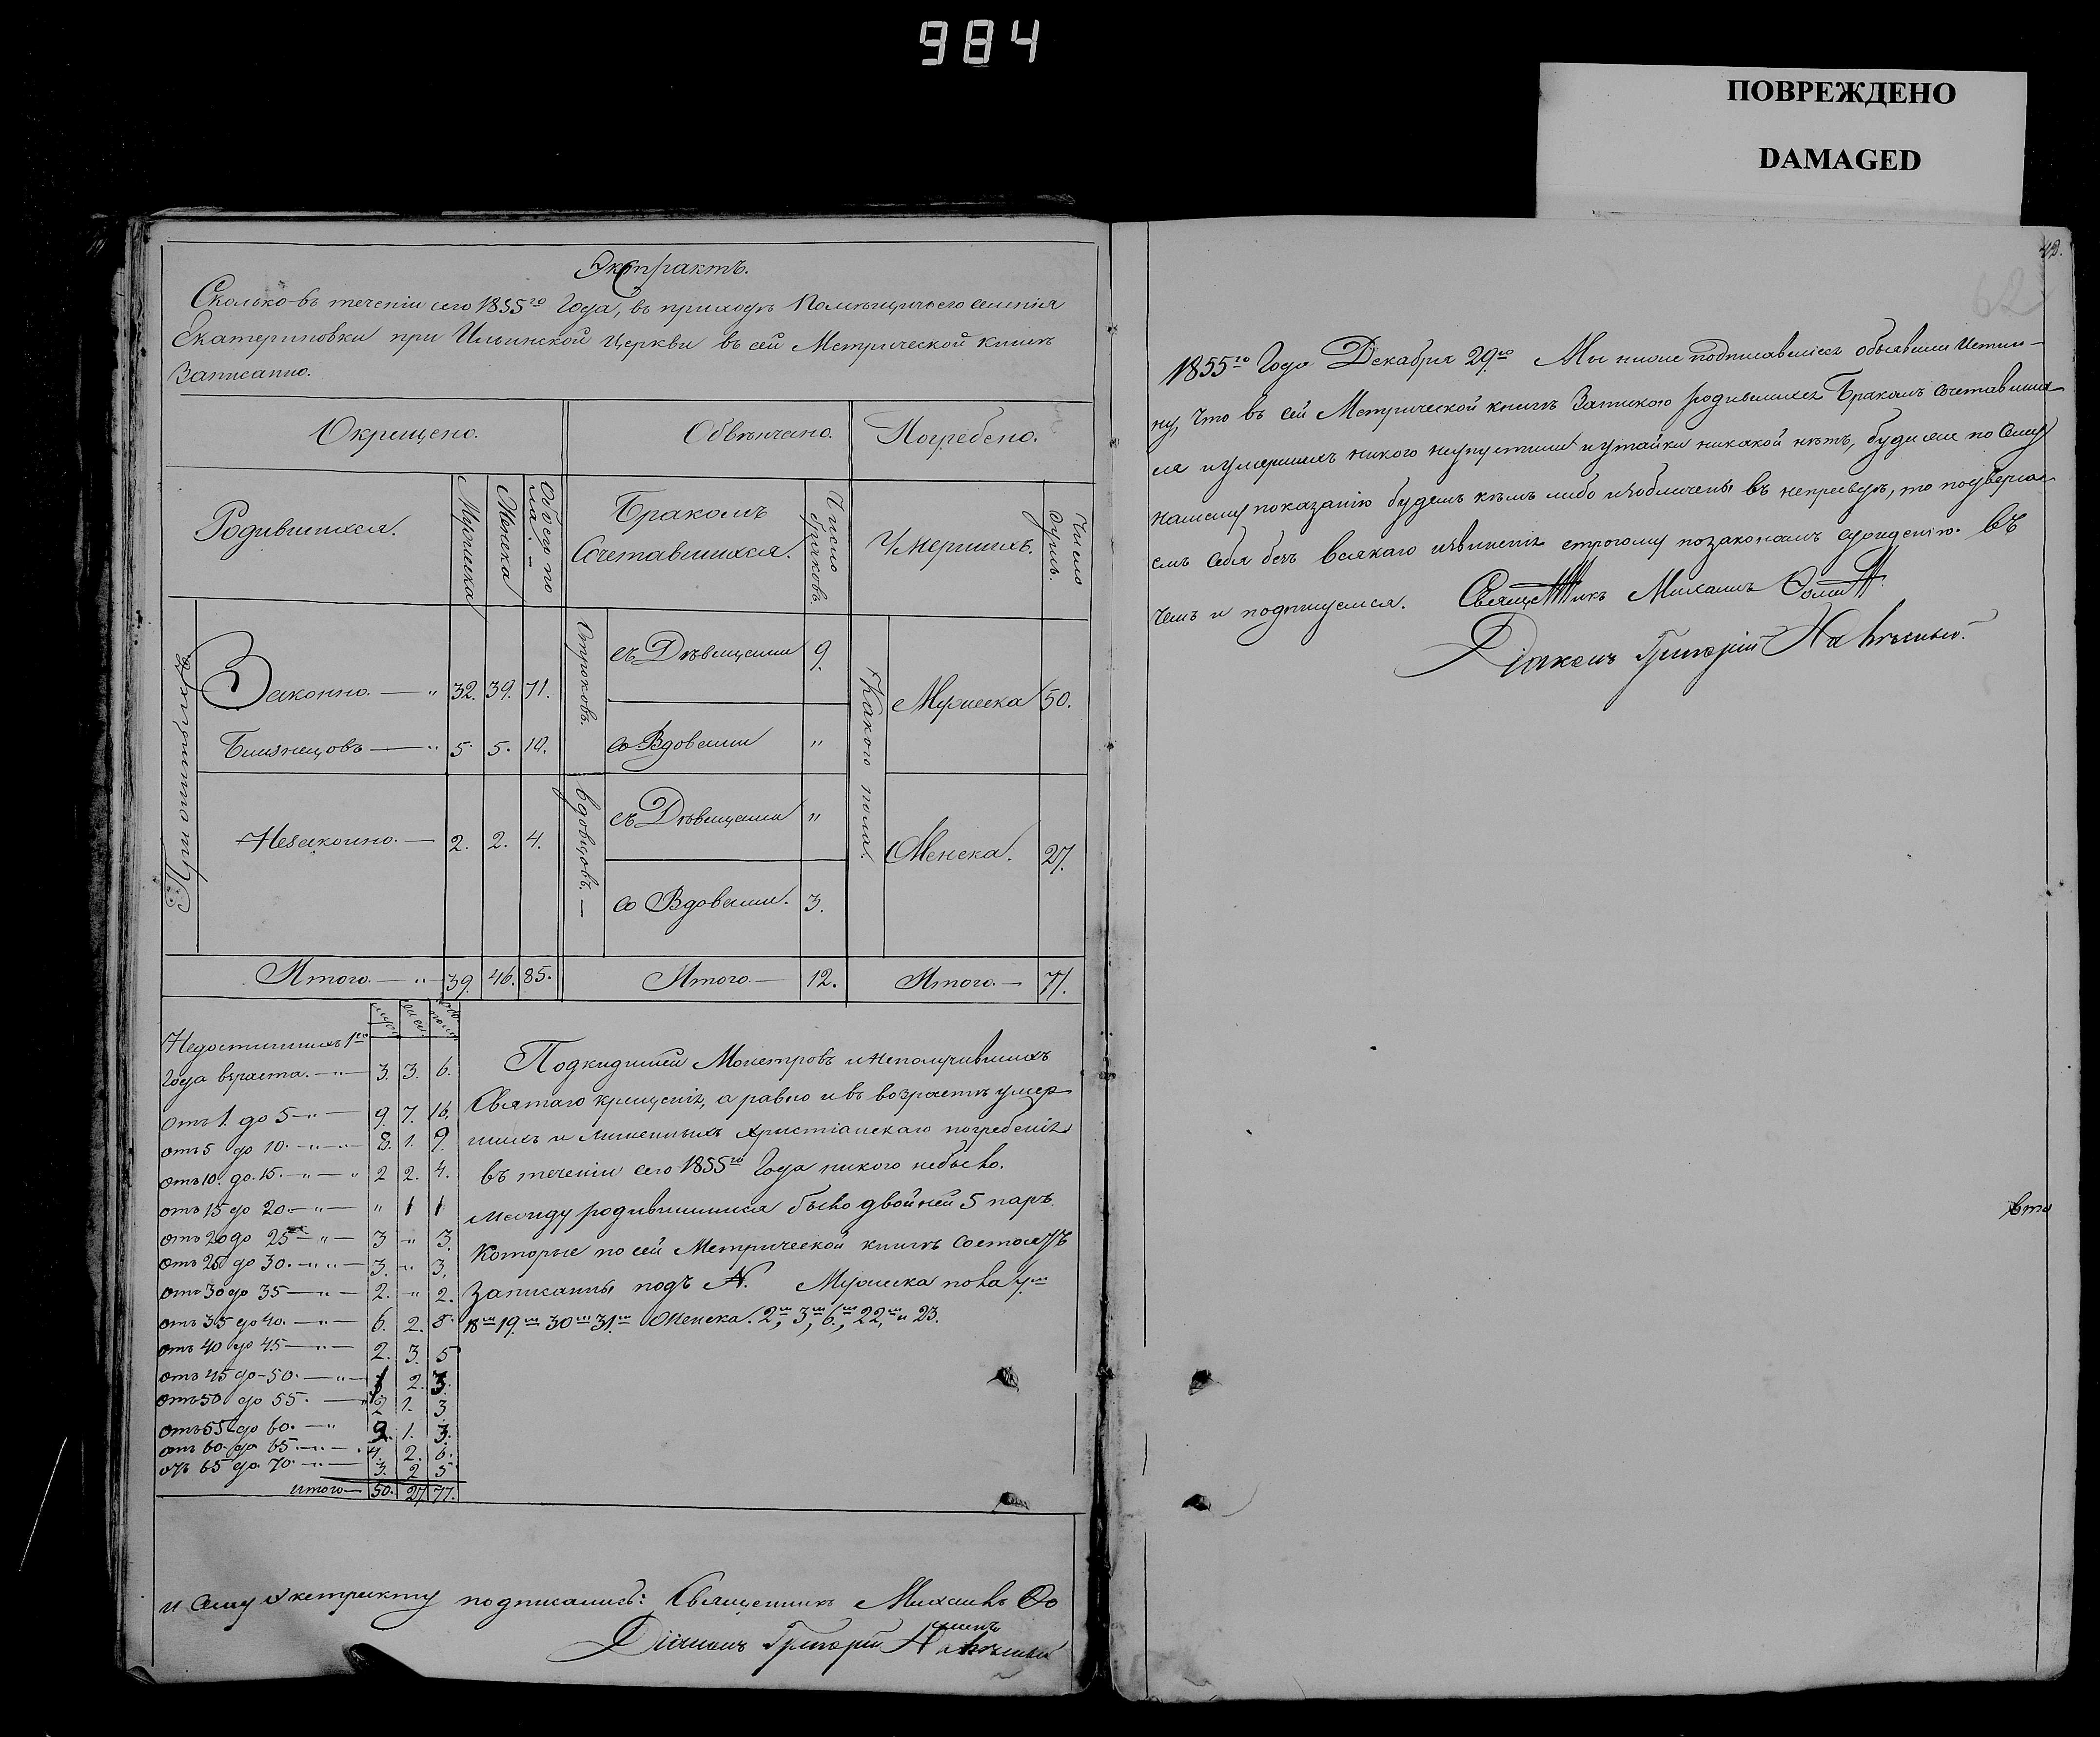 984
ПОВРЕЖДЕНО
DAMAGED
Экстрактъ.
Сколько въ теченіи сего 1855го Года, въ приходѣ Помѣщичьего селенія
Екатериновки при Ильинской Церкви въ сей Метрической книгѣ
Записанно.
Окрещено.
Обвѣнчано.
Погребено.
Родившихся.
Мужеска
Женска
Обоего по
ла. —
Бракомъ
Сочетавшихся.
Число
браковъ.
Умершихъ.
Число
душъ.
Законно. — " 32. 39. 71.
Близнецовъ — " 5. 5. 10.
Незаконно. — 2. 2. 4.
Отроковъ.
съ Дѣвицами 9.
со Вдовами "
вдовцовъ. —
съ Дѣвицами "
со Вдовами. 3.
Какого пола.
Мужеска 50.
Женска. 27.
Итого. — " 39. 46. 85.
Итого. — 12.
Итого. — 77.
Недостигшихъ 1го
Года взраста. — " — 3. 3. 6.
отъ 1. до 5 — " — 9. 7. 16.
отъ 5 до 10. — " — " — 8. 1. 9.
отъ 10. до 15. — " — " 2 2. 4.
отъ 15 до 20. — " — " 1 1
отъ 20 до 25 — " — 3 " 3.
отъ 25 до 30. — " — " — 3. " 3.
отъ 30 до 35 — " — 2. " 2.
отъ 35 до 40. — " — 6. 2. 8.
отъ 40 до 45 — " — 2. 3. 5
отъ 45 до 50. — " — 1 2. 3.
отъ 50 до 55. — " 2 1. 3
отъ 55 до 60. — " 2. 1. 3.
отъ 60 до 65. — " — 4. 2. 6.
отъ 65 до 70. — " — 3. 2 5
итого — 50. 27 77.
Подкидышей Монстровъ и неполучившихъ
Святаго крещенія, а равно и въ возрастѣ умер
шихъ и лишенныхъ христіанскаго погребенія
въ теченіи сего 1855го Года никого небыло.
между родившимися было двойней 5 паръ.
Которые по сей Метрической книгѣ состоятъ
Записанны подъ №. Мужеска пола
18м 19.м 30м 31.м Женска. 2м, 3м, 6.м, 22,м и 23.
и сему экстракту подписались: Священникъ Михаилъ Фо
минъ
Діаконъ Григорій
42.
62
1855го Года Декабря 29.го Мы ниже подписавшіеся объявили истин-
ну, что въ сей Метрической книгѣ Запискою родившихся Бракомъ сочетавших
ся и умершихъ никого неупустили и утайки никакой нѣтъ, буди же по сему
нашему показанію будемъ кѣмъ либо изобличены въ неправдѣ, то подверга
емъ себя безъ всякаго извиненія строгому по законамъ сужденію. въ
чемъ и подпишемся. Священникъ Михаилъ Фоминъ.
Діаконъ Григорій